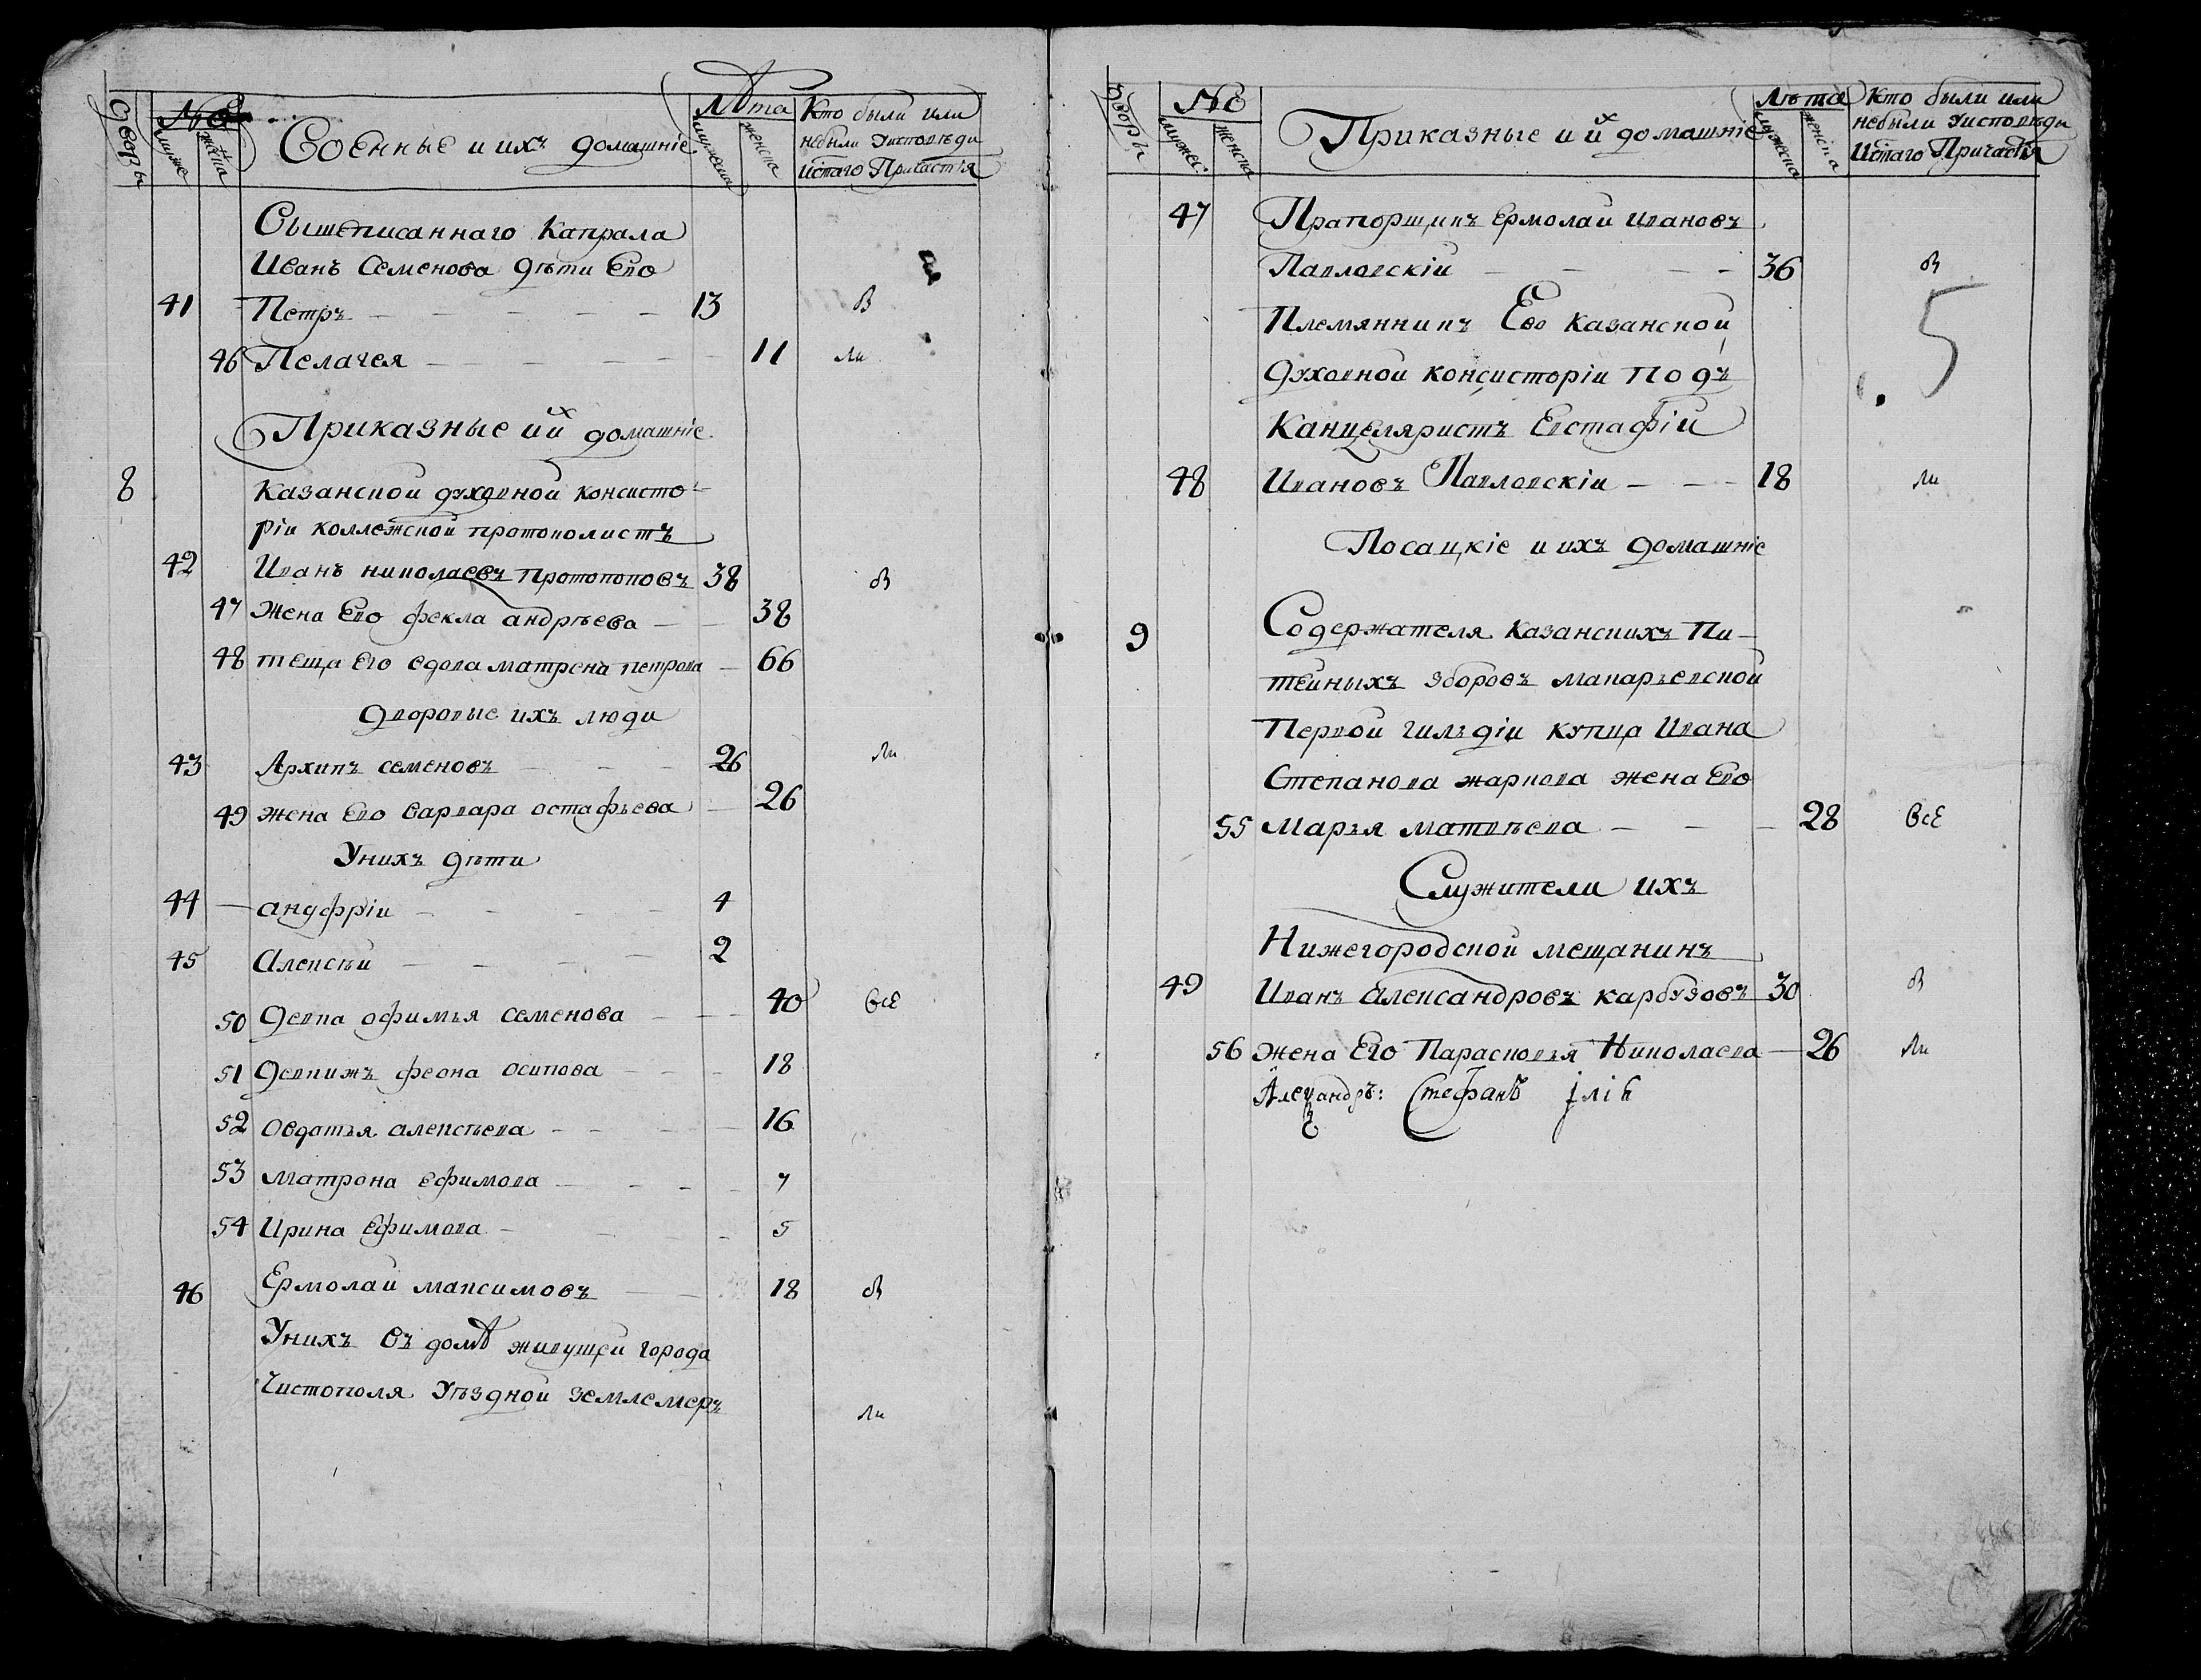 Лѣта
Дворы
№
мужес
женска
Военные и ихъ домашніе
мужеска
женска
Кто были или
небыли Уисповѣди
Истаго Причастія
Вышеписаннаго Капрала
Иванъ Семенова дѣти Его
41 Петръ 13 В
46 Пелагея 11 ли
Приказные и их домашніе
8 Казанской духовной консисто-
ріи коллежской протоколистъ
42 Иванъ николаевъ Протопоповъ 38 в
47 Жена Его фекла андрѣева 38
48 теща Его вдова матрена петрова 66
Дворовые ихъ люди
43 Архипъ семеновъ 26 ли
49 жена Его варвара остафьева 26
Унихъ дѣти
44 андрѣи 4
45 Алексѣи 2
50 Девка офимья семенова 40 всѣ
51 Девкижъ феона осипова 18
52 овдотья алексѣева 16
53 матрона ефимова 7
54 Ирина Ефимова 5
46 Ермолаи максимовъ 18 в
Унихъ въ домѣ живущеи города
Чистополя Уѣздной землемеръ
ли
Дворы
№
мужес:
женска
Приказные и их домашніе
Лѣта
мужеска
женска
Кто были или
небыли Уисповѣди
Истаго Причастія
47 Прапорщикъ Ермолаи Ивановъ
Павловскіи 36 в
5
Племянникъ Ево Казанской
Духовной консисторіи Подъ
Канцеляристъ Евстафіи
48 Ивановъ Павловскіи 18 ли
Посацкіе и ихъ домашніе
9 Содержателя Казанскихъ Пи-
тейныхъ зборовъ макарьевской
Первой гильдіи купца Ивана
Степанова жаркова жена Ево
55 Марья матвѣева 28 всѣ
Служители ихъ
Нижегородской мещанинъ
49 Иванъ Александровъ карбузовъ 30 в
56 Жена Его Парасковья Николаева 26 ли
Алеѯандръ: Стефанъ